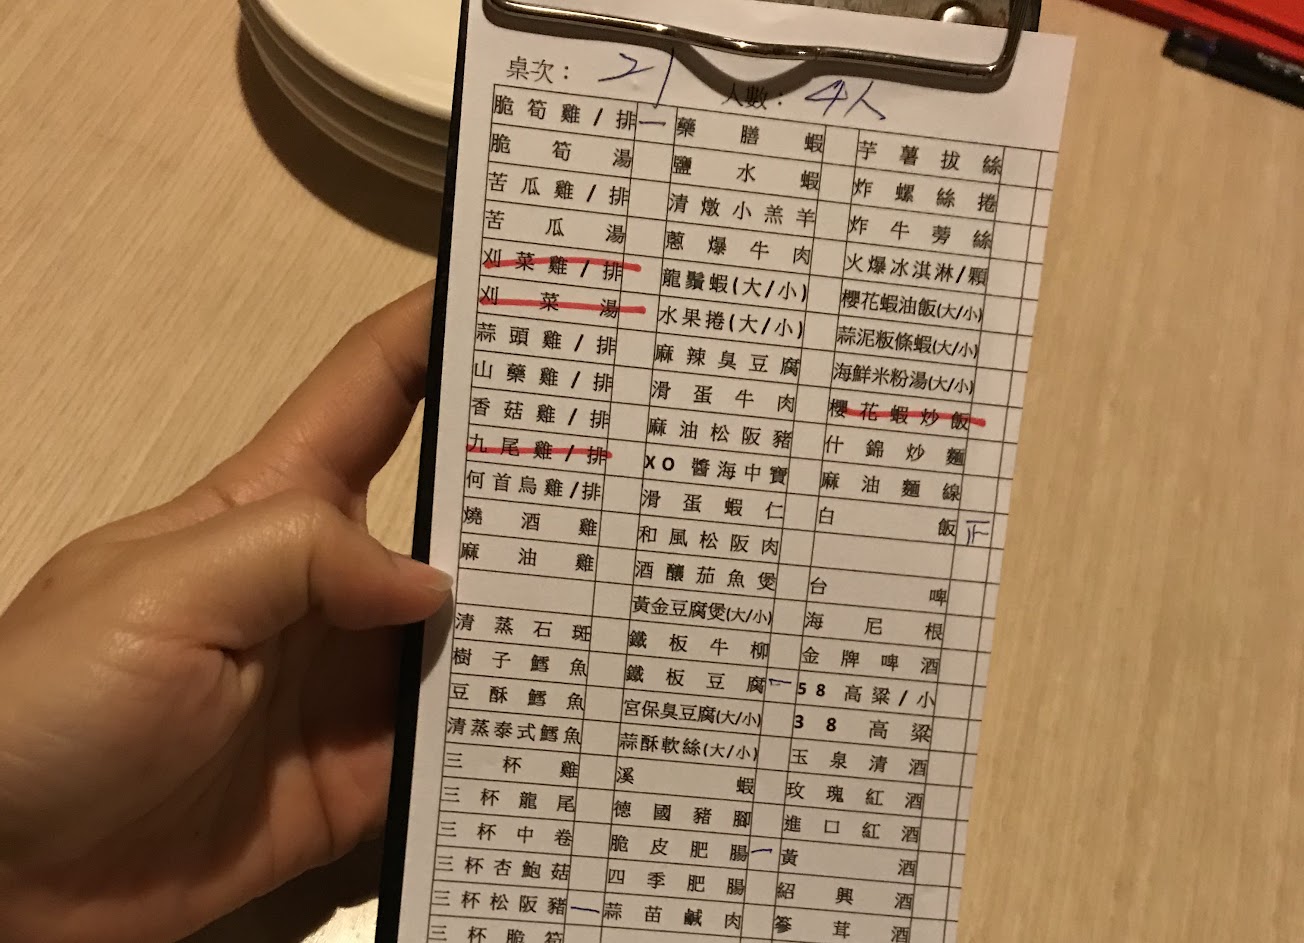 桌次： 21 人數： 4人
脆筍雞/排 一
脆筍湯
苦瓜雞/排
苦瓜湯
刈菜雞/排
刈菜湯
蒜頭雞/排
山藥雞/排
香菇雞/排
九尾雞/排
何首烏雞/排
燒酒雞
麻油雞
清蒸石斑
樹子鱈魚
豆酥鱈魚
清蒸泰式鱈魚
三杯雞
三杯龍尾
三杯中卷
三杯杏鮑菇
三杯松阪豬 一
三杯脆筍
藥膳蝦
鹽水蝦
清燉小羔羊
蔥爆牛肉
龍鬚蝦(大/小)
水果捲(大/小)
麻辣臭豆腐
滑蛋牛肉
麻油松阪豬
XO醬海中寶
滑蛋蝦仁
和風松阪肉
酒釀茄魚煲
黃金豆腐煲(大/小)
鐵板牛柳
鐵板豆腐 一
宮保臭豆腐(大/小)
蒜酥軟絲(大/小)
溪蝦
德國豬腳
脆皮肥腸 一
四季肥腸
蒜苗鹹肉
芋薯拔絲
炸螺絲捲
炸牛蒡絲
火爆冰淇淋/顆
櫻花蝦油飯(大/小)
蒜泥粄條蝦(大/小)
海鮮米粉湯(大/小)
櫻花蝦炒飯
什錦炒麵
麻油麵線
白飯
台啤
海尼根
金牌啤酒
58高粱/小
38高粱
玉泉清酒
玫瑰紅酒
進口紅酒
黃酒
紹興酒
蔘茸酒